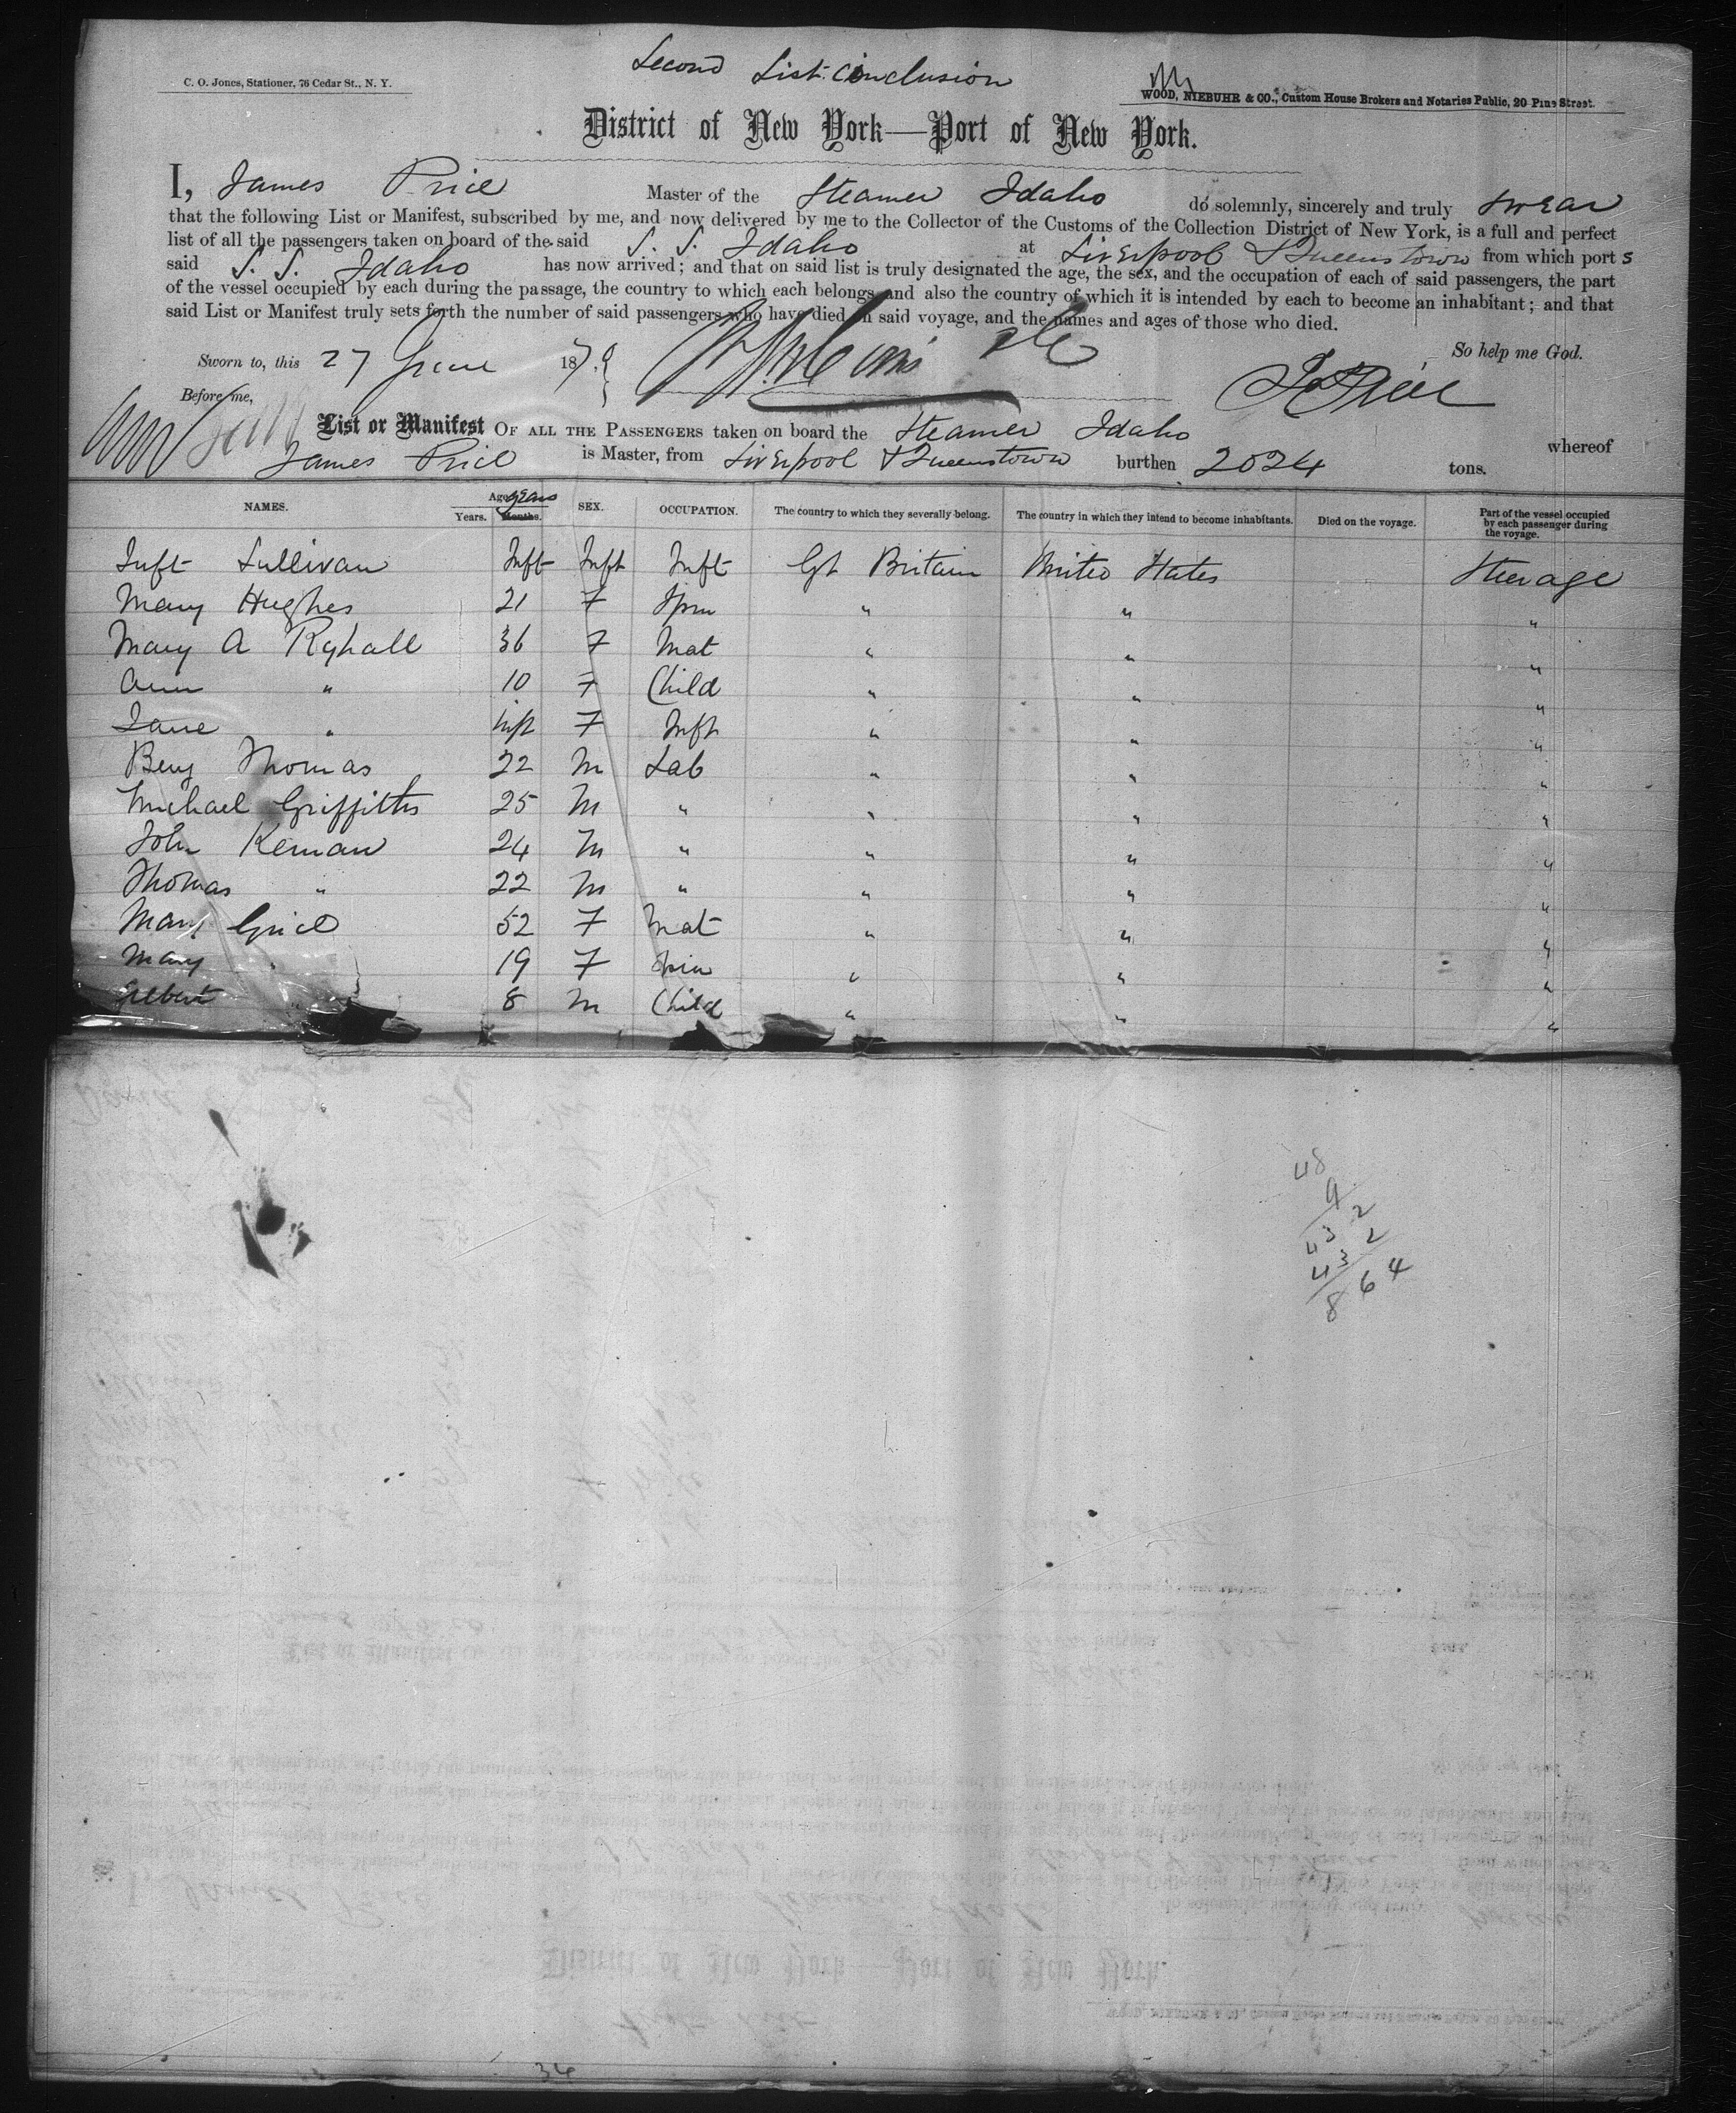 Second List. Conclusion
C. O. Jones, Stationer, 76 Cedar St., N. Y.
WOOD, NIEBUHR & CO., Custom House Brokers and Notaries Public, 20 Pine Street.
District of New York—Port of New York.
I, James Price Master of the Steamer Idaho do solemnly, sincerely and truly swear
that the following List or Manifest, subscribed by me, and now delivered by me to the Collector of the Customs of the Collection District of New York, is a full and perfect
list of all the passengers taken on board of the said S. S. Idaho at Liverpool & Queenstown from which ports
said S. S. Idaho has now arrived; and that on said list is truly designated the age, the sex, and the occupation of each of said passengers, the part
of the vessel occupied by each during the passage, the country to which each belongs, and also the country of which it is intended by each to become an inhabitant; and that
said List or Manifest truly sets forth the number of said passengers who have died on said voyage, and the names and ages of those who died.
So help me God.
Sworn to, this 27 June 187
Jas Price
Before me,
List or Manifest OF ALL THE PASSENGERS taken on board the Steamer Idaho whereof
James Price is Master, from Liverpool & Queenstown burthen 2024 tons.
NAMES. Age Years. Months. years SEX. OCCUPATION. The country to which they severally belong. The country in which they intend to become inhabitants. Died on the voyage. Part of the vessel occupied by each passenger during the voyage.
Inft Sullivan Inft Inft Inft Gt Britain United States Steerage
Mary Hughes 21 F Spin " " "
Mary A Ryhall 36 F Mat " " "
Ann " 10 F Child " " "
Jane " inft F Inft " " "
Benj Thomas 22 M Lab " " "
Michael Griffiths 25 M " " " "
John Kernan 24 M " " " "
Thomas " 22 M " " " "
Mary Grice 52 F Mat " " "
Mary " 19 F Spin " " "
Albert " 8 M Child " " "
48
9
43 2
43 2
8 64
34